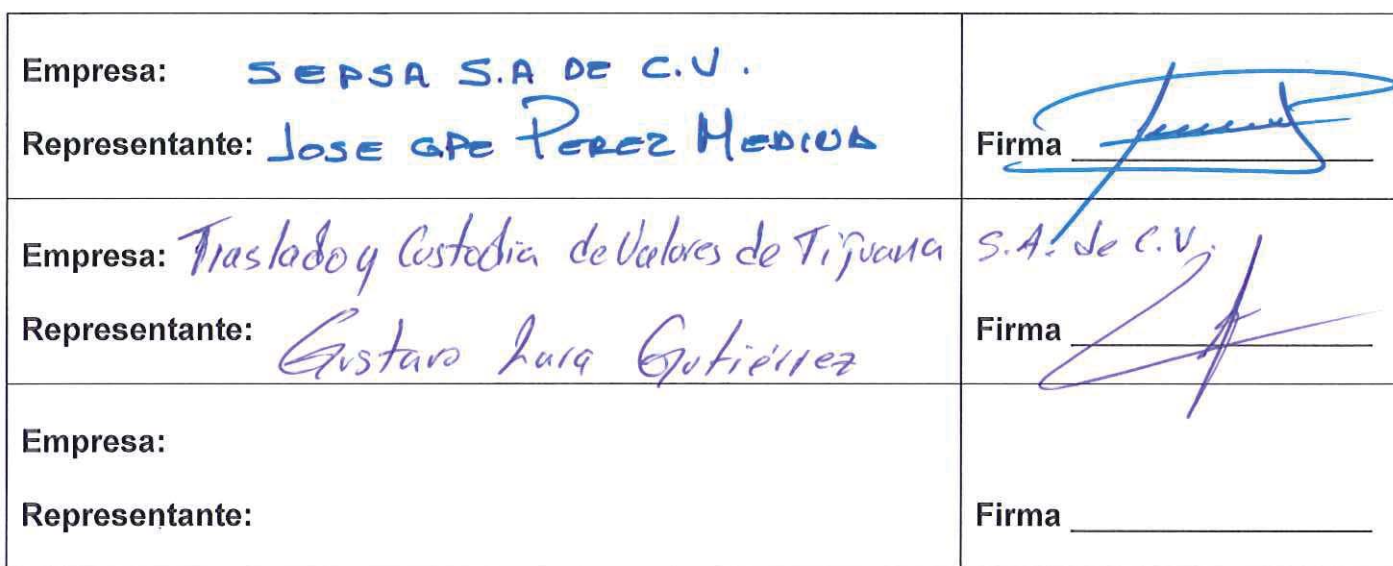 Empresa: SEPSA S.A DE C.V.
Representante: JOSE GPE PEREZ MEDINA Firma
Empresa: Traslado y Custodia de Valores de Tijuana S.A. de C.V.
Representante: Gustavo Lara Gutiérrez Firma
Empresa:
Representante: Firma